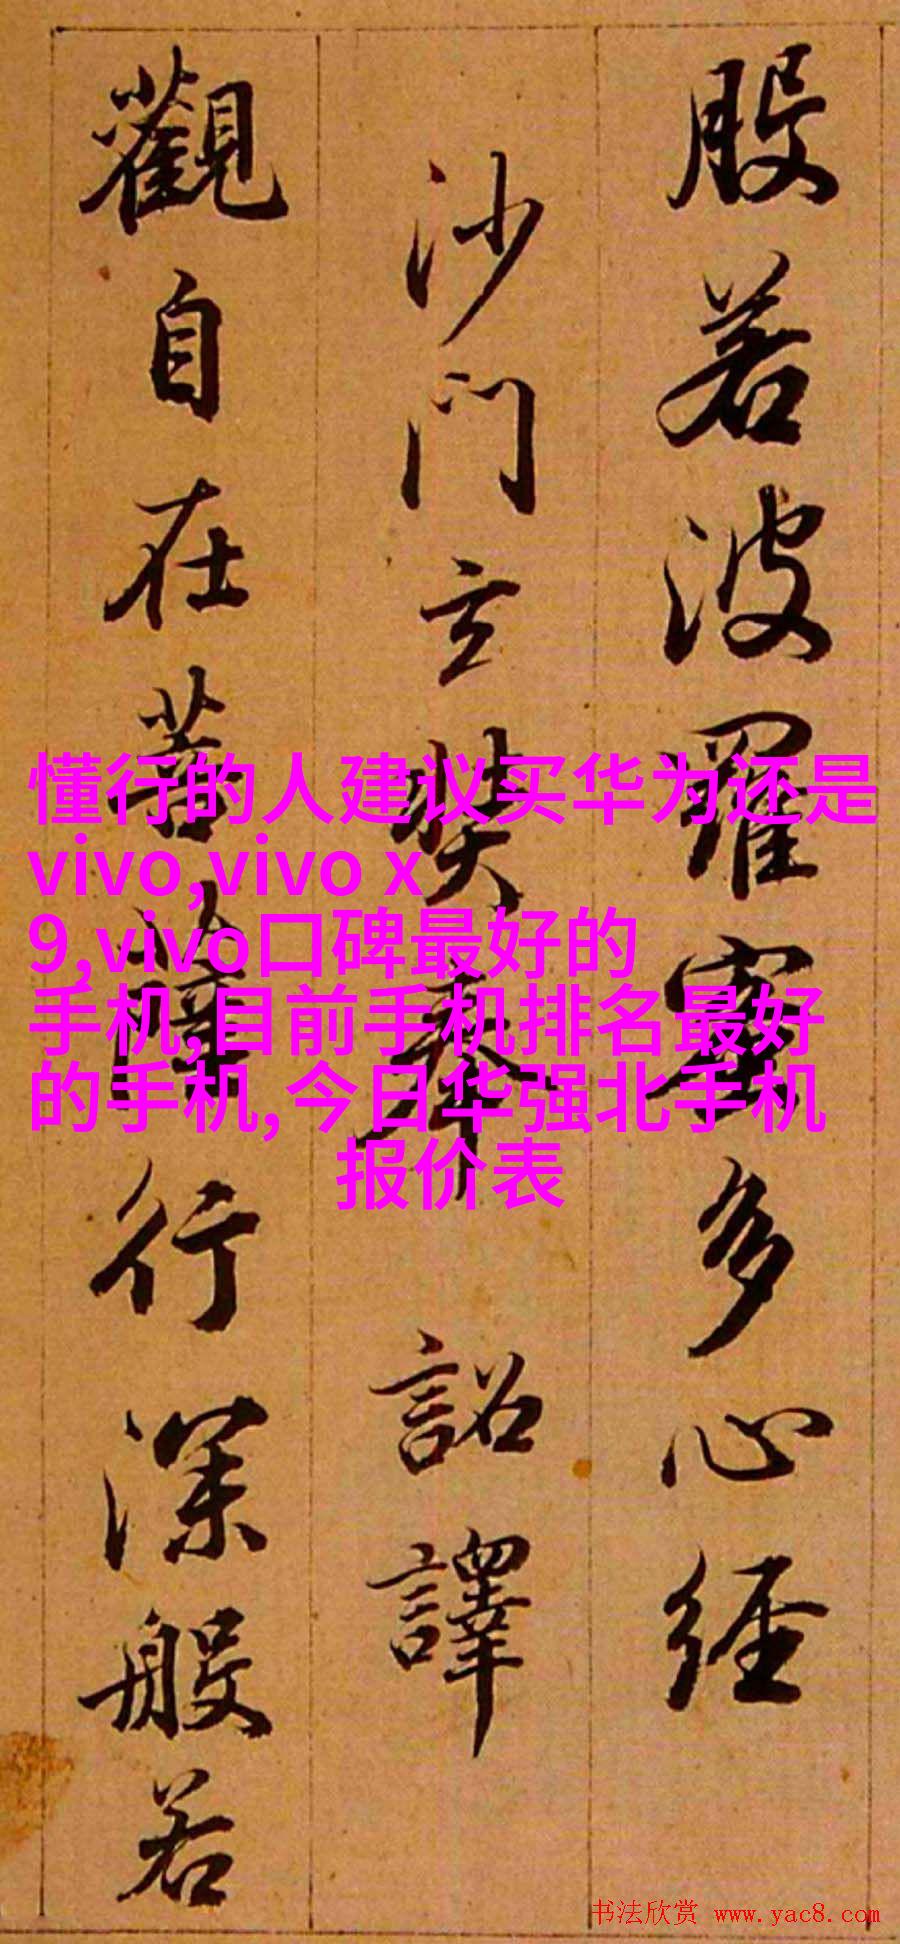 般若波羅蜜多心経
沙門玄奘奉 詔譯
觀自在菩薩行深般若
懂行的人建议买华为还是
vivo,vivo x
9,vivo口碑最好的
手机,目前手机排名最好
的手机,今日华强北手机
报价表
书法欣赏 www.yac8.com